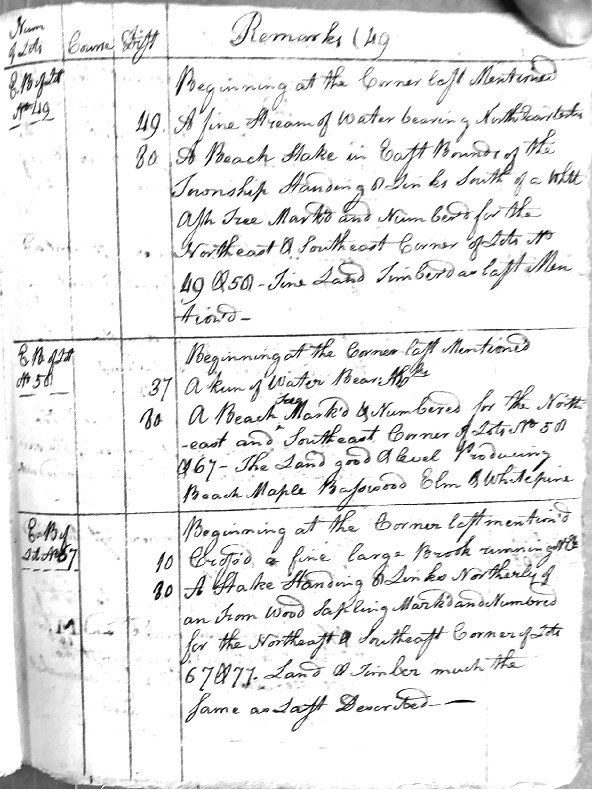 Num of Lots Course Dist Remarks (49
E B of Lot No 49 Beginning at the Corner last Mentioned
49 A fine Stream of Water bearing Northeasterly
80 A Beach Stake in East Bounds of the
Township Standing 8 Links South of a White
Ash Tree Mark'd and Number'd for the
Northeast & Southeast Corner of Lots No
49 & 58 - Fine Land Timberd as last Men
tion'd -
E B of Lot No 58 Beginning at the Corner last Mentiond
37 A run of Water Bears
80 A Beach Tree Mark'd & Numbered for the North
-east and Southeast Corner of Lots No 58
& 67 - The Land good & level Producing
Beach Maple Basswood Elm & White pine
E B of Lot No 67 Beginning at the Corner last mention'd
10 Cross'd a fine large Brook running
80 A Stake Standing 8 Links Northerly of
an Iron Wood Sapling Markd and Numbred
for the Northeast & Southeast Corner of Lots
67 & 77. Land & Timber much the
same as Last Described —